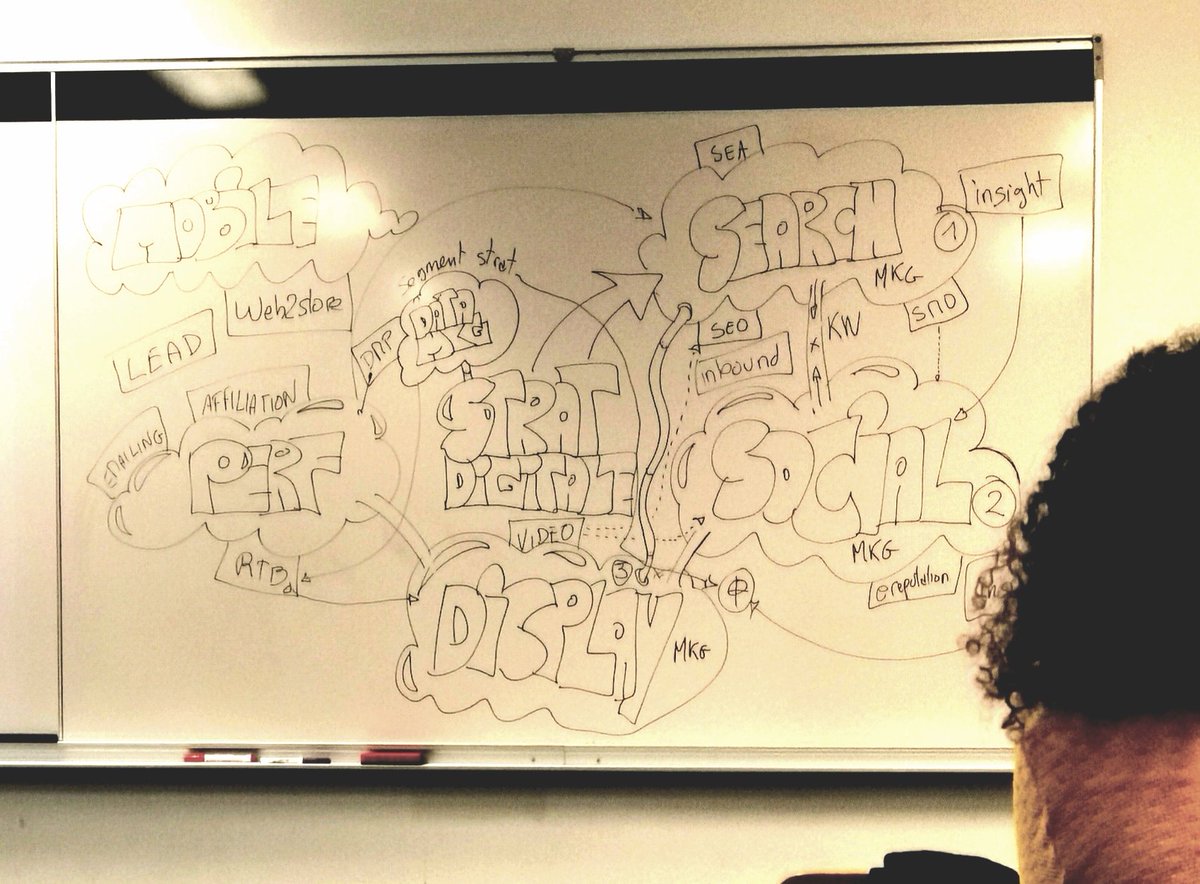 SEA
MOBILE
SEARCH
insight
1
MKG
segment strat
Web2store
DATA
MKG
SEO
KW
SMO
LEAD
DMP
inbound
AFFILIATION
STRAT
DIGITALE
EMAILING
PERF
SOCIAL
2
VIDEO
MKG
RTB
3
ereputation
DISPLAY
MKG